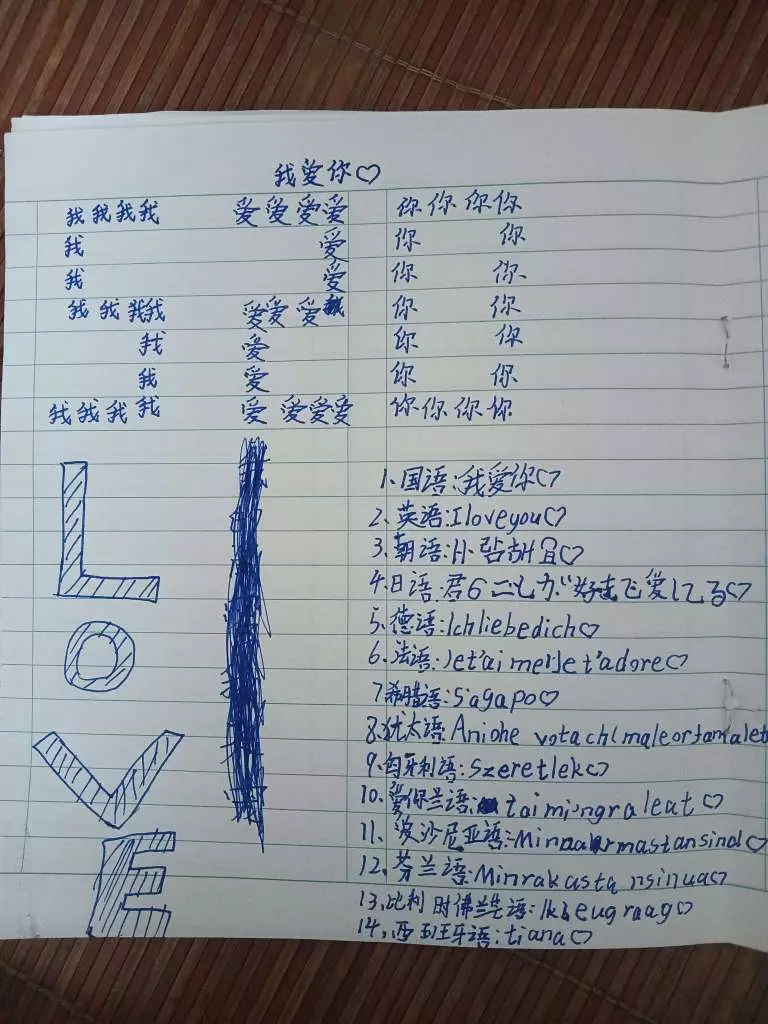 我爱你♡
我我我我 爱爱爱爱 你你你你
我 爱 你 你
我 爱 你 你
我我我我 爱爱爱 你 你
我 爱 你 你
我 爱 你 你
我我我我 爱爱爱爱 你你你你
LOVE
1、国语:我爱你♡
2、英语:Iloveyou♡
3、朝语:
4、日语:
5、德语:Ichliebedich♡
6、法语:Jet'aime!Jet'adore♡
7、希腊语:S'agapo♡
8、犹太语:Aniohe votach(maleorfamalet
9、匈牙利语:Szeretlek♡
10、爱你兰语:taimi,ngraleat♡
11、波沙尼亚语:
12、芬兰语:Minrakasta nsinua♡
13、比利时佛兰芒语:Ikzeugraag♡
14、西班牙语:tiana♡